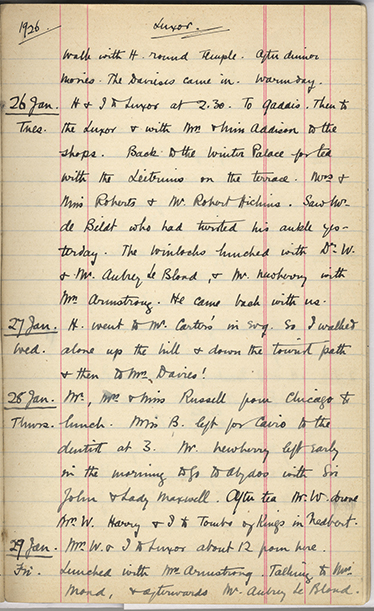 1926. Luxor.
walk with H. round Temple. After dinner
movies. The Davises came in. Warm day.
26 Jan. H & I to Luxor at 2.30. To Gaddis. Then to
Tues. the Luxor & with Mrs & Miss Addison to the
shops. Back to the Winter Palace for tea
with the Leitrims on the terrace. Mrs &
Miss Roberts & Mr Robert Hichens. Saw Mr
de Bildt who had twisted his ankle yes-
terday. The Winlocks lunched with Dr. W.
& Mr. Aubrey Le Blond, & Mr. Newberry with
Mrs. Armstrong. He came back with us.
27 Jan. H. went to Mr. Carters' in evg. So I walked
Wed. alone up the hill & down the tourist path
& then to Mrs. Davies!
28 Jan. Mr., Mrs & Miss Russell from Chicago to
Thurs. lunch. Miss B. left for Cairo to the
dentist at 3. Mr. Newberry left early
in the morning to go to Abydos with Sir
John & Lady Maxwell. After tea Mr. W. drove
Mrs. W. Harry & I to Tombs of Kings in
29 Jan. Mrs. W. & I to Luxor about 12 from here.
Fri. Lunched with Mrs Armstrong. Talking to Miss
Mond, & afterwards Mr. Aubrey Le Blond.